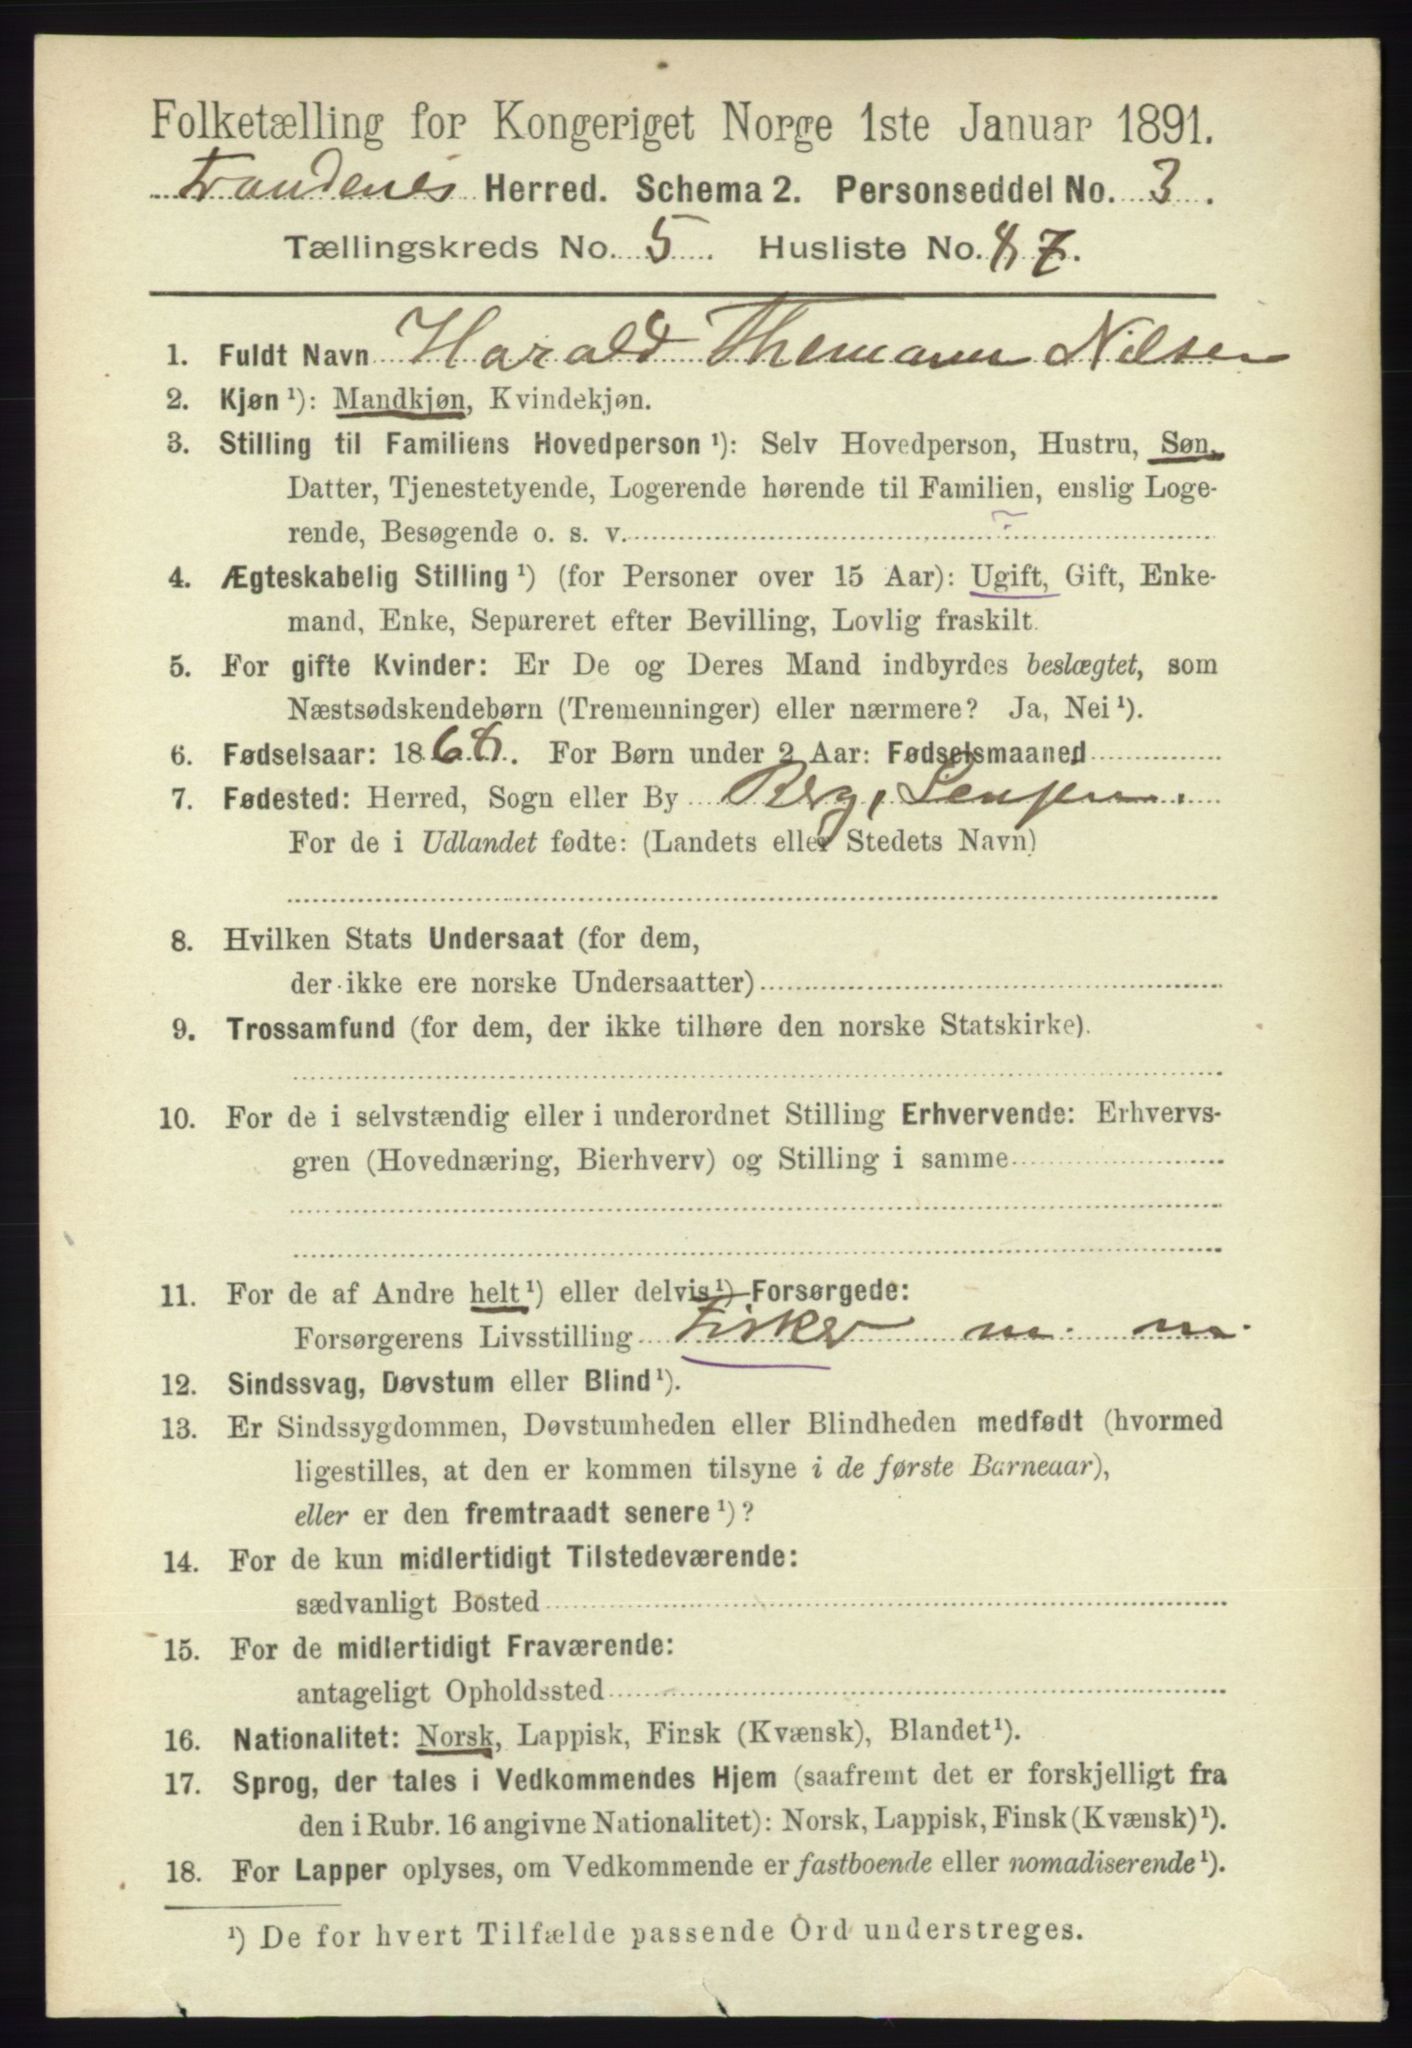 Folketælling for Kongeriget Norge 1ste Januar 1891.
Trondenes Herred. Schema 2. Personseddel No. 3.
Tællingskreds No. 5. Husliste No. 87.
1. Fuldt Navn Harald Themann Nilsen
2. Kjøn ¹): Mandkjøn, Kvindekjøn.
3. Stilling til Familiens Hovedperson ¹): Selv Hovedperson, Hustru, Søn,
Datter, Tjenestetyende, Logerende hørende til Familien, enslig Loge-
rende, Besøgende o. s. v.
4. Ægteskabelig Stilling ¹) (for Personer over 15 Aar): Ugift, Gift, Enke-
mand, Enke, Separeret efter Bevilling, Lovlig fraskilt.
5. For gifte Kvinder: Er De og Deres Mand indbyrdes beslægtet, som
Næstsødskendebørn (Tremenninger) eller nærmere? Ja, Nei ¹).
6. Fødselsaar: 1868. For Børn under 2 Aar: Fødselsmaaned
7. Fødested: Herred, Sogn eller By Berg, Senjen.
For de i Udlandet fødte: (Landets eller Stedets Navn)
8. Hvilken Stats Undersaat (for dem,
der ikke ere norske Undersaatter)
9. Trossamfund (for dem, der ikke tilhøre den norske Statskirke).
10. For de i selvstændig eller i underordnet Stilling Erhvervende: Erhvervs-
gren (Hovednæring, Bierhverv) og Stilling i samme
11. For de af Andre helt ¹) eller delvis ¹) Forsørgede:
Forsørgerens Livsstilling Fisker m. m.
12. Sindssvag, Døvstum eller Blind ¹).
13. Er Sindssygdommen, Døvstumheden eller Blindheden medfødt (hvormed
ligestilles, at den er kommen tilsyne i de første Barneaar),
eller er den fremtraadt senere ¹)?
14. For de kun midlertidigt Tilstedeværende:
sædvanligt Bosted
15. For de midlertidigt Fraværende:
antageligt Opholdssted
16. Nationalitet: Norsk, Lappisk, Finsk (Kvænsk), Blandet ¹).
17. Sprog, der tales i Vedkommendes Hjem (saafremt det er forskjelligt fra
den i Rubr. 16 angivne Nationalitet): Norsk, Lappisk, Finsk (Kvænsk) ¹).
18. For Lapper oplyses, om Vedkommende er fastboende eller nomadiserende ¹).
¹) De for hvert Tilfælde passende Ord understreges.